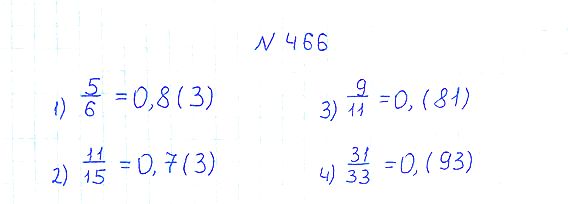 № 466
1) 5/6 = 0,8(3)
2) 11/15 = 0,7(3)
3) 9/11 = 0,(81)
4) 31/33 = 0,(93)